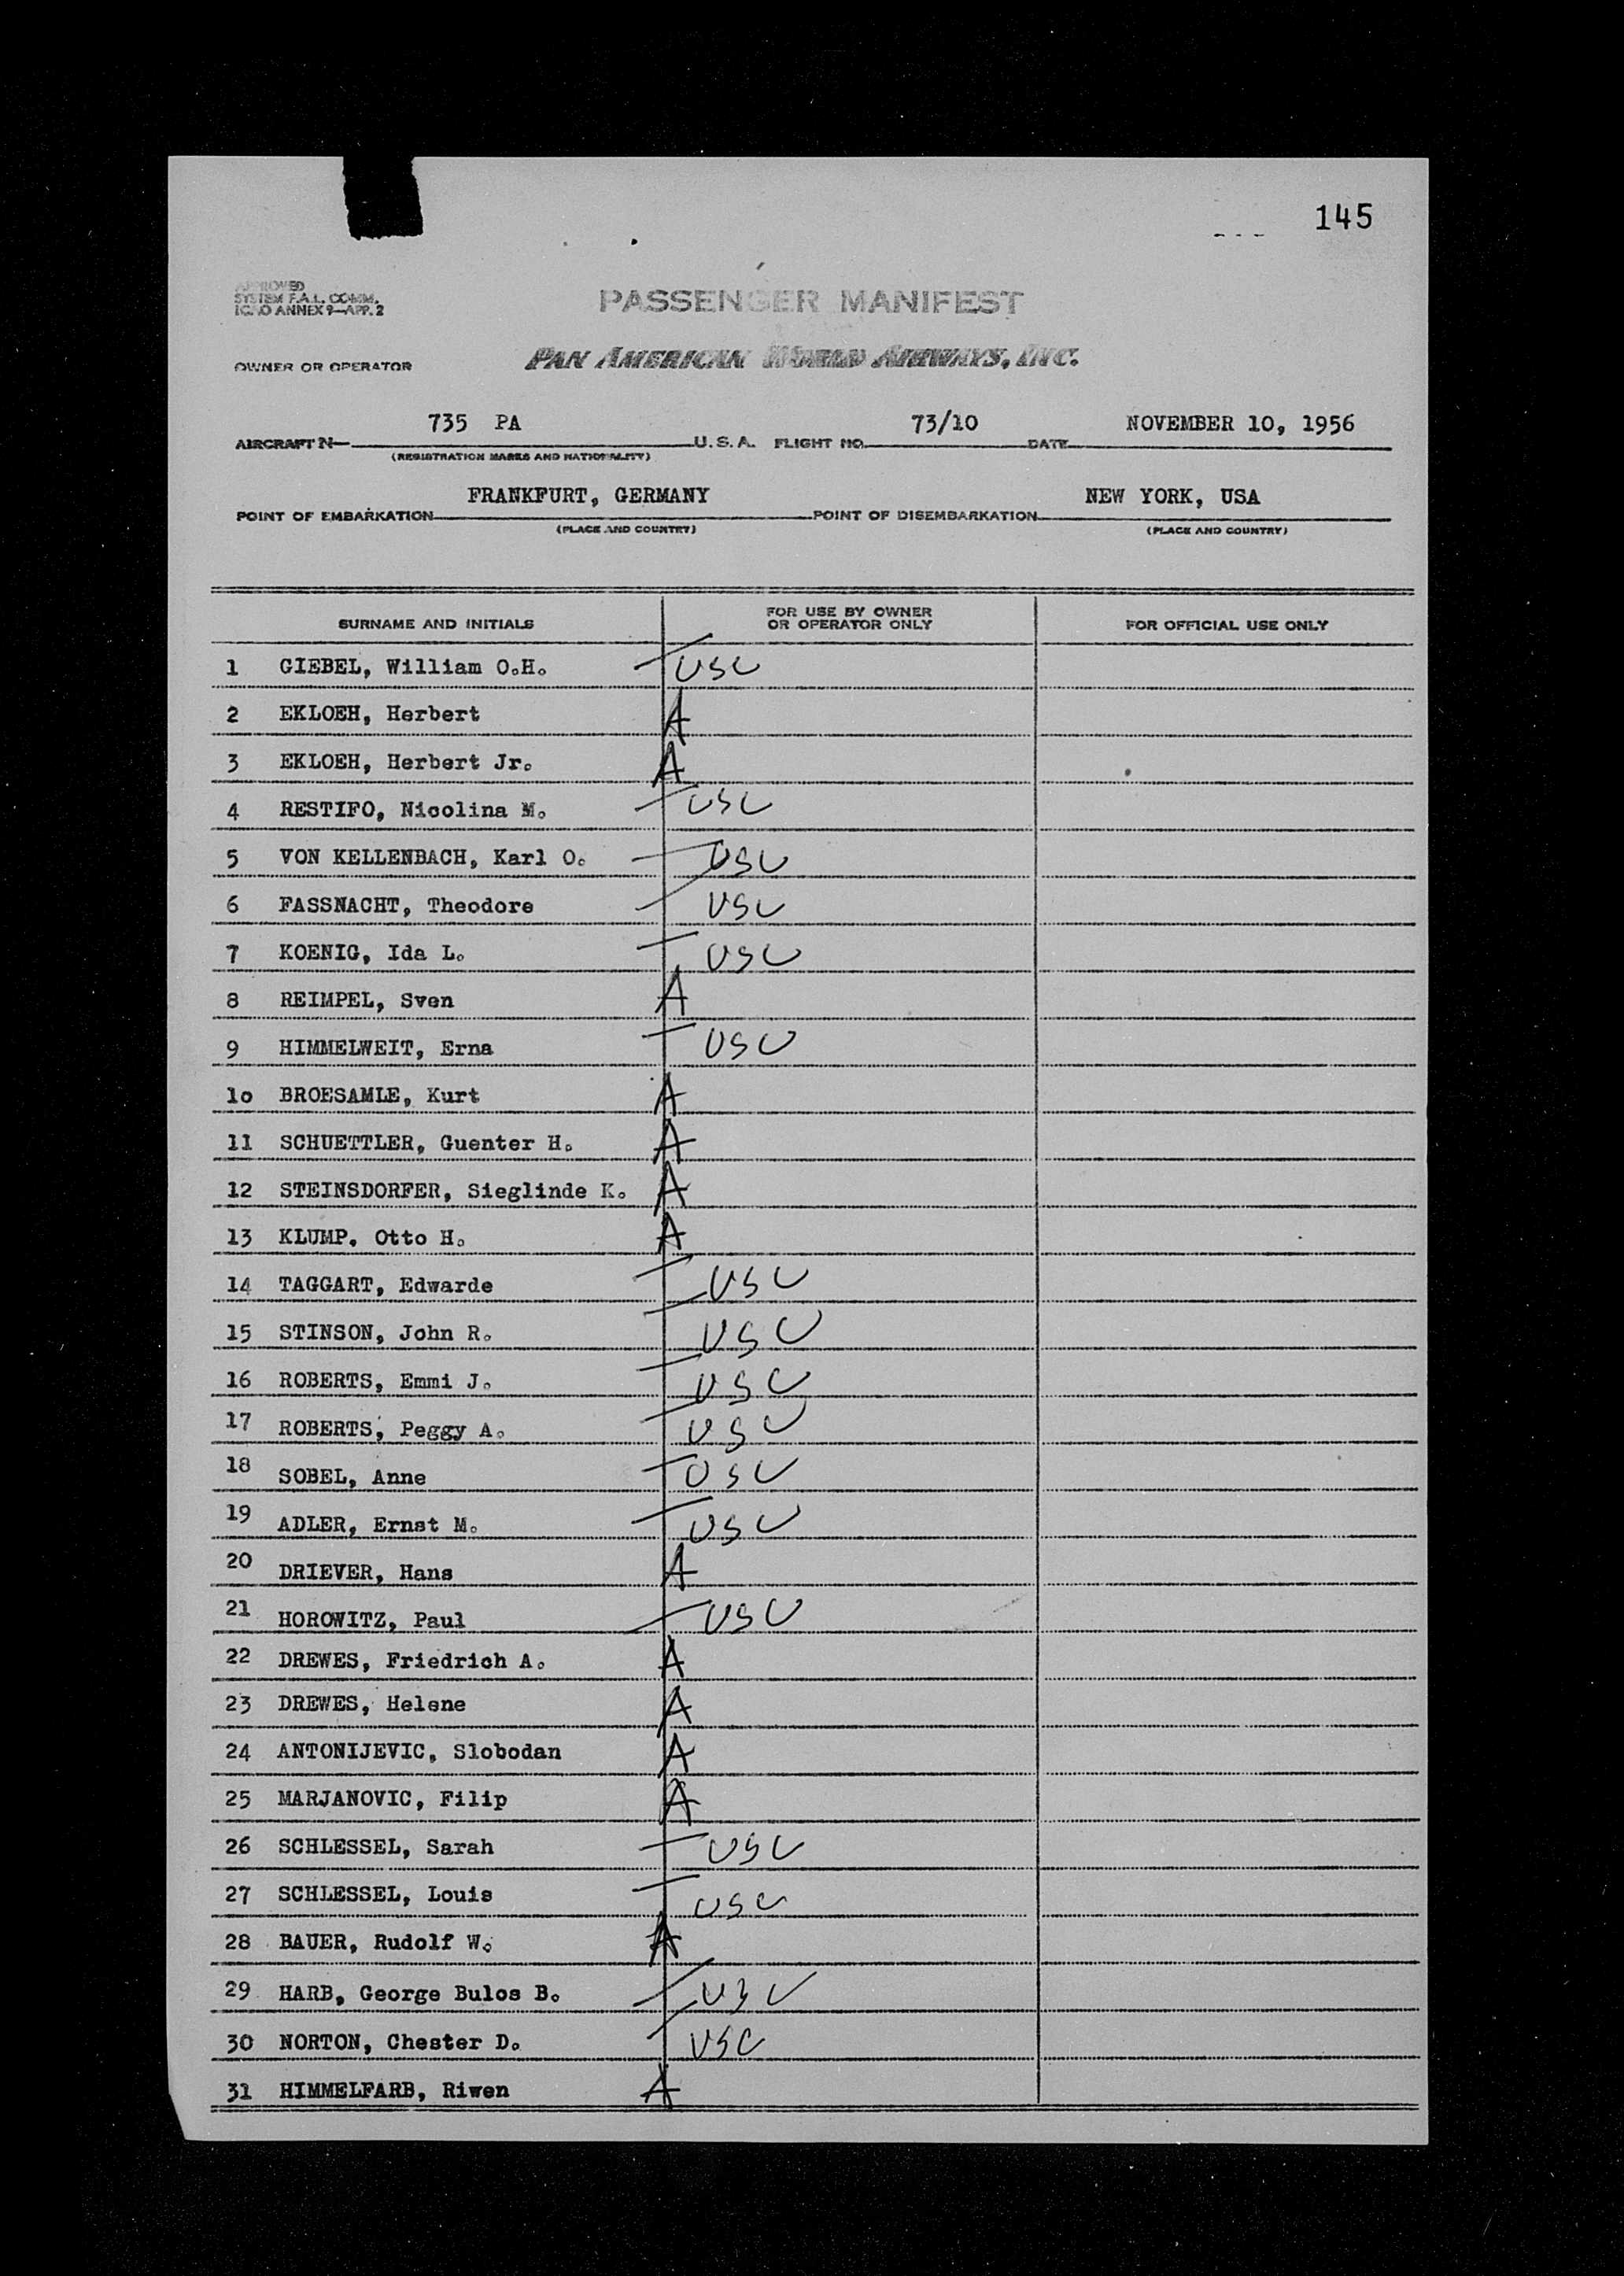 145
APPROVED
SYSTEM F.A.L. COMM.
ICAO ANNEX 9—APP. 2
PASSENGER MANIFEST
OWNER OR OPERATOR PAN AMERICAN WORLD AIRWAYS, INC.
AIRCRAFT N— 735 PA U.S.A. FLIGHT NO. 73/10 DATE NOVEMBER 10, 1956
(REGISTRATION MARKS AND NATIONALITY)
POINT OF EMBARKATION FRANKFURT, GERMANY POINT OF DISEMBARKATION NEW YORK, USA
(PLACE AND COUNTRY) (PLACE AND COUNTRY)
SURNAME AND INITIALS FOR USE BY OWNER OR OPERATOR ONLY FOR OFFICIAL USE ONLY
1 GIEBEL, William O.H. USC
2 EKLOEH, Herbert A
3 EKLOEH, Herbert Jr. A
4 RESTIFO, Nicolina M. USC
5 VON KELLENBACH, Karl O. USC
6 FASSNACHT, Theodore USC
7 KOENIG, Ida L. USC
8 REIMPEL, Sven A
9 HIMMELWEIT, Erna USC
1o BROESAMLE, Kurt A
11 SCHUETTLER, Guenter H. A
12 STEINSDORFER, Sieglinde K. A
13 KLUMP. Otto H. A
14 TAGGART, Edwarde USC
15 STINSON, John R. USC
16 ROBERTS, Emmi J. USC
17 ROBERTS, Peggy A. USC
18 SOBEL, Anne USC
19 ADLER, Ernst M. USC
20 DRIEVER, Hans A
21 HOROWITZ, Paul USC
22 DREWES, Friedrich A. A
23 DREWES, Helene A
24 ANTONIJEVIC, Slobodan A
25 MARJANOVIC, Filip A
26 SCHLESSEL, Sarah USC
27 SCHLESSEL, Louis USC
28 BAUER, Rudolf W. A
29 HARB, George Bulos B. USC
30 NORTON, Chester D. USC
31 HIMMELFARB, Riwen A